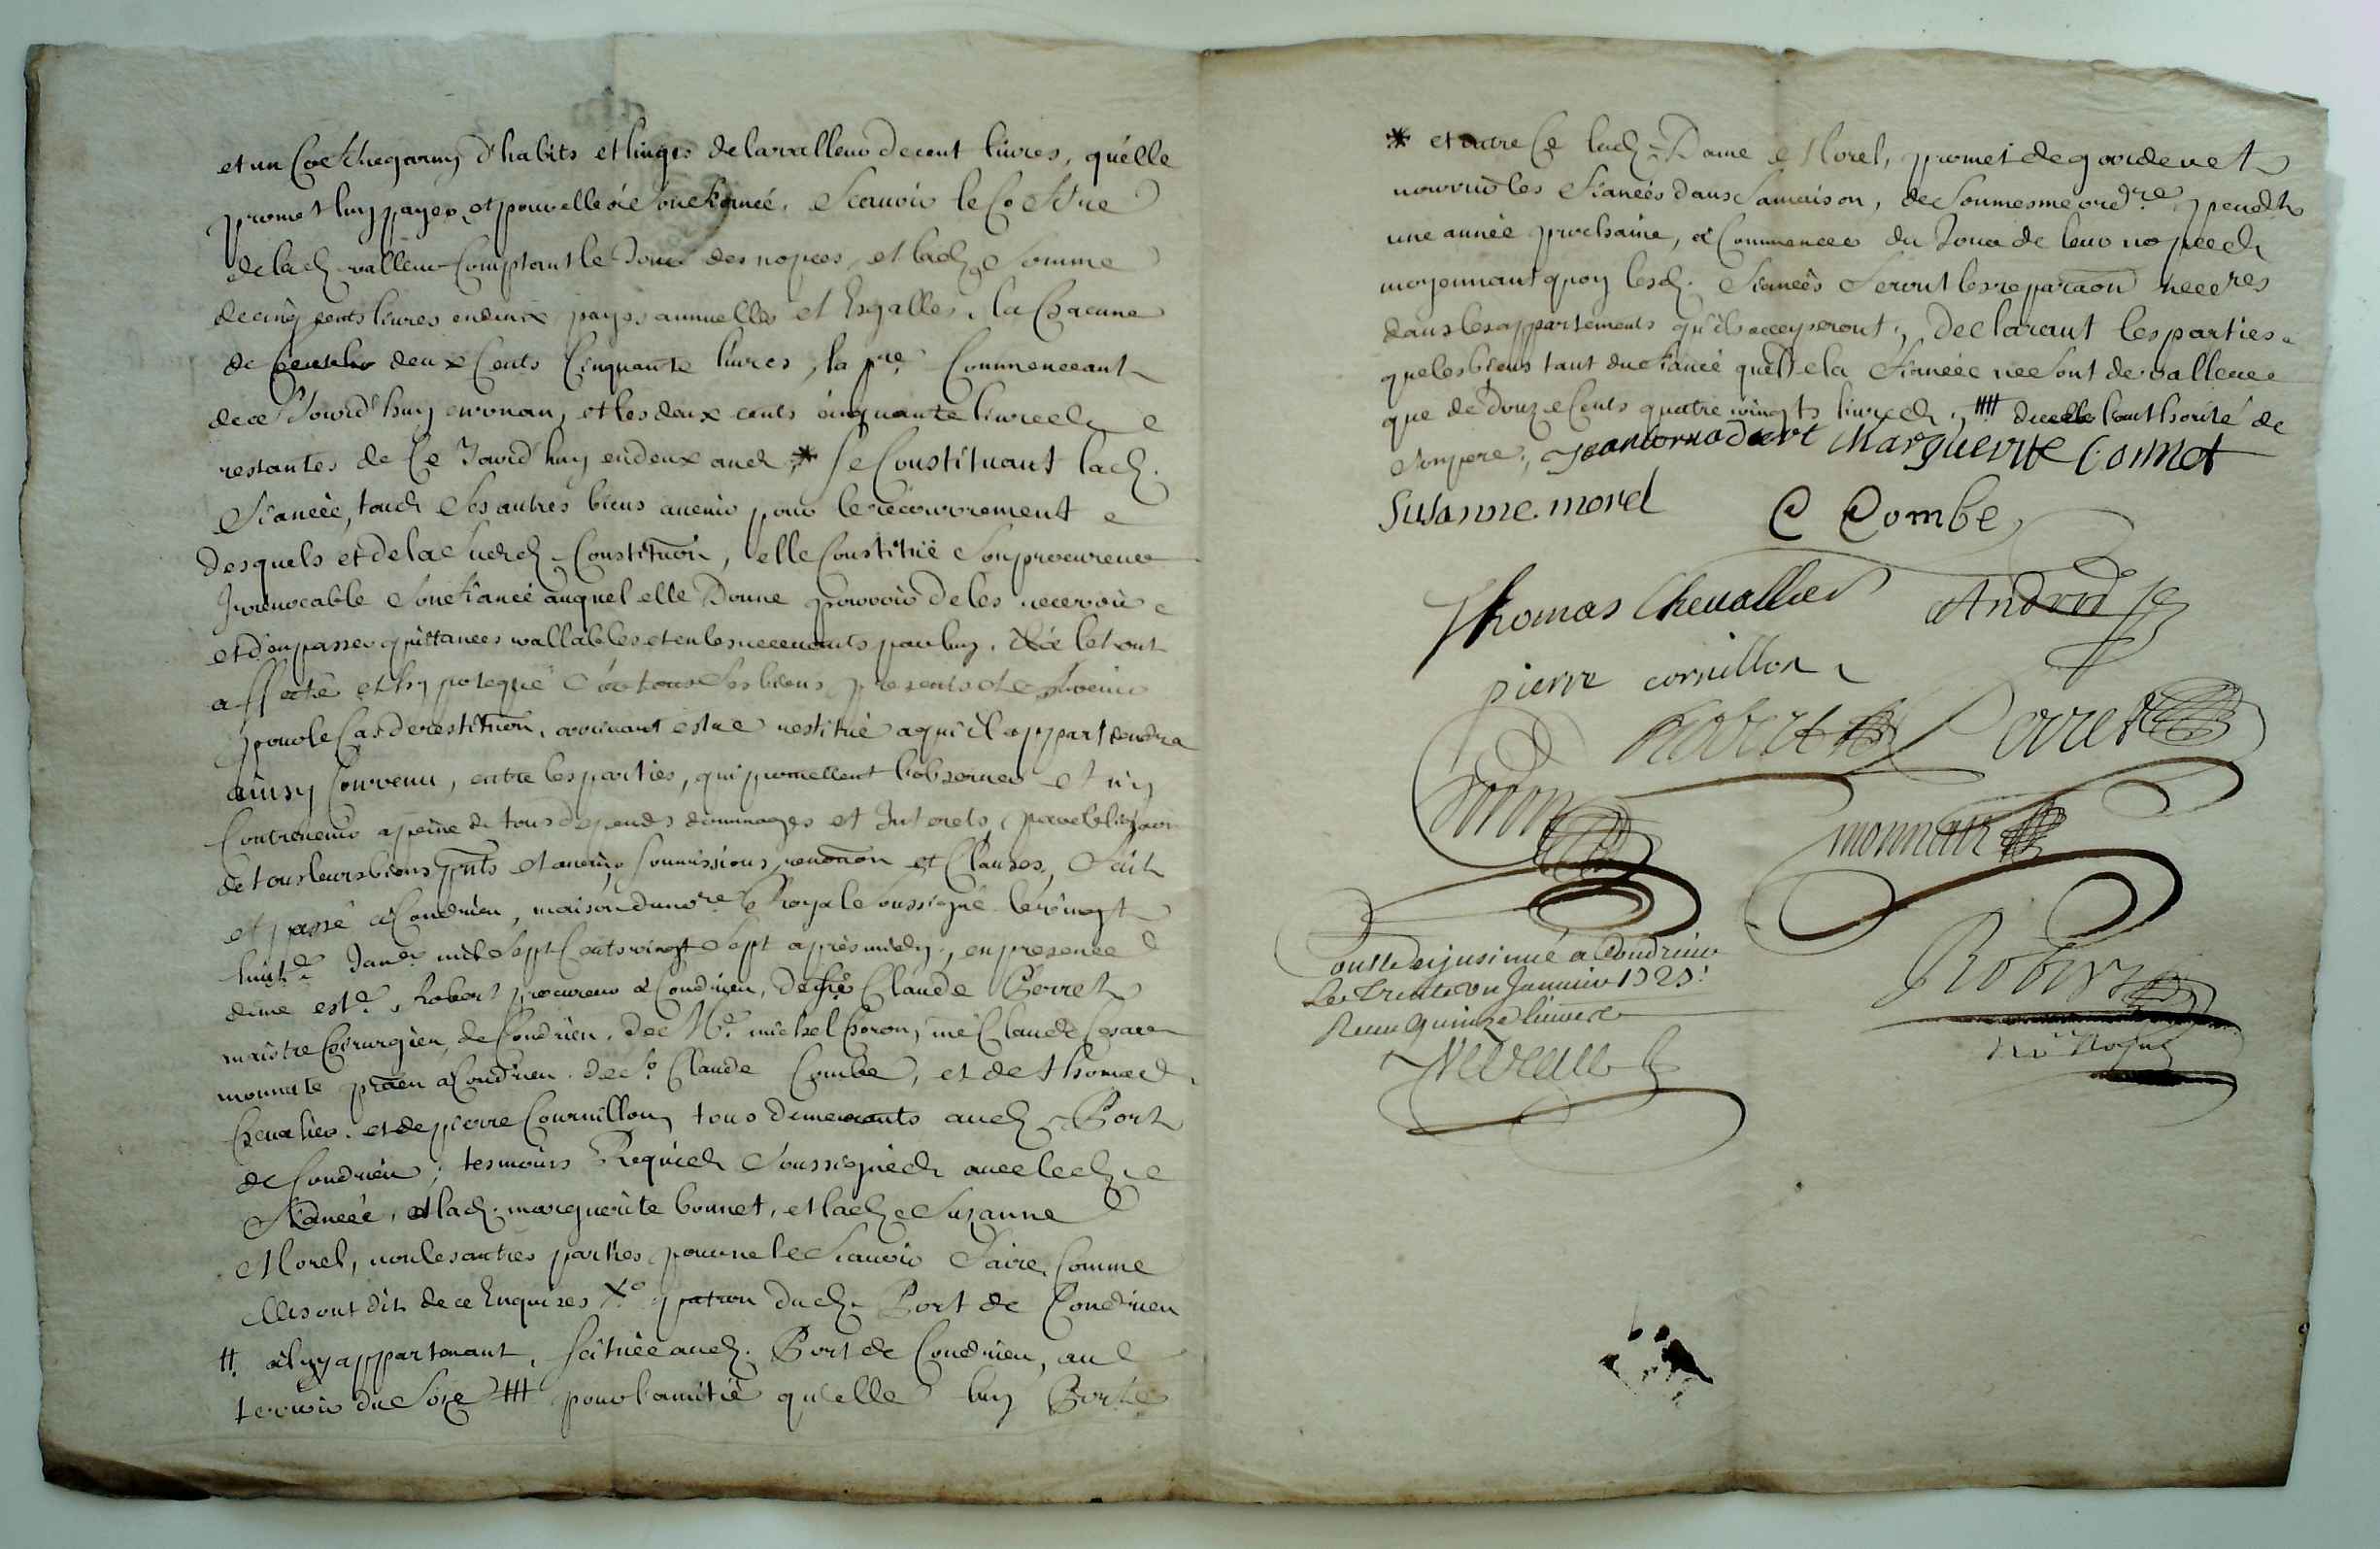 et un Coffre garny d'habits et linges de la valleur de cent livres, qu'elle
promet luy payer, et pour elle a son fiancé, Scauoir le Coffre
de lad. valleur Comptant le Jour des nopces, et lad. Somme
de cinq cents livres en deux payes annuelles et Esgalles, la Chacune
de deux Cents Cinquante livres, la pre. Commenceant
de ce Jourd'huy en un an, et les deux cents cinquante livres
restantes de Ce Jourd'huy en deux ans * Se Constituant lad.
fiancée, tous Ses autres biens auenir pour le recouvrement
desquels et de la Susd. Constituon, elle Constitue Son procureur
Irreuocable Son fiancé auquel elle Donne pouuoir de les receuoir
et d'en passer quittances vallables et en les receuants par luy,
affecté et hypotequé tous Ses biens presents et auenir
pour le Cas de restituon, auenant estre restitué a qui il appartiendra
ainsy Convenu, entre les parties, qui promettent l'obseruer et n'y
Contreuenir a peine de tous depends dommages et Interets, par
de tous leurs biens pnts et auenir, Soumissions, renonon et Clauses, fait
et passé a Condrieu, maison du nore. Royal Soussigné le vingt
huit Januer mil Sept Cents vingt Sept apres midy, en presence
de me Robert procureur a Condrieu, de Claude Perret
maistre Chirurgien de Condrieu, de michel Coron, me Claude Cesar
monnate praen a Condrieu de Sr. Claude Combe, et de thomas
Cheualier et de pierre Cournillon tous demeurants aud. Port
de Condrieu, tesmoins Requis Soussignés auec led.
fiancé, et lad. marguerite bonnet, et lad. Suzanne
Morel, non les autres parties pour ne le Scauoir faire, Comme
Elles ont dit de ce Enquises X patron dud. Port de Condrieu
# a luy appartenant, Scituée aud. Port de Condrieu, au
terroir du # pour l'amitié qu'elle luy Porte
* et outre Ce lad. Dame Morel, promet de garder et
nourrir les fiancés dans Sa maison, de Son mesme ordre, pendt
une année prochaine, a Commencer du Jour de leur nopces
moyennant quoy lesd. fiancés feront les reparaon necres
dans les appartements qu'ils occuperont, Declarant les parties
que les biens tant du fiancé que de la fiancée ne Sont de valleur
que de Douze Cents quatre vingts livres # de l'authorité de
Son pere, Marguerite bonnet
Susanne morel C Combe
Thomas Chevallier André
pierre cornillon
Robert Perret
Coron monnate
Controlle et insinué a Condrieu
Le Trente un Januier 1727
Receu quinze liures
Robert
no. Royal